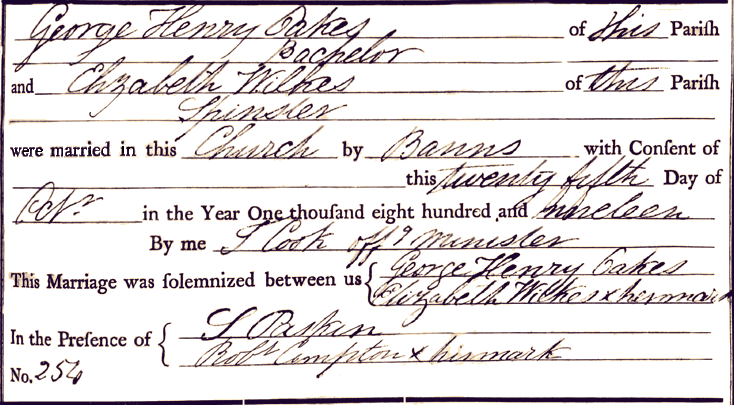 George Henry Oakes of this Pariſh
Bachelor
and Elizabeth Wilkes of this Pariſh
Spinster
were married in this Church by Banns with Conſent of
this twenty fifth Day of
Octr in the Year One thouſand eight hundred and nineteen
By me S Cook offg Minister
This Marriage was ſolemnized between us { George Henry Oakes
Elizabeth Wilkes x her mark
In the Preſence of { S Paskin
Robt Compton x his mark
No. 256